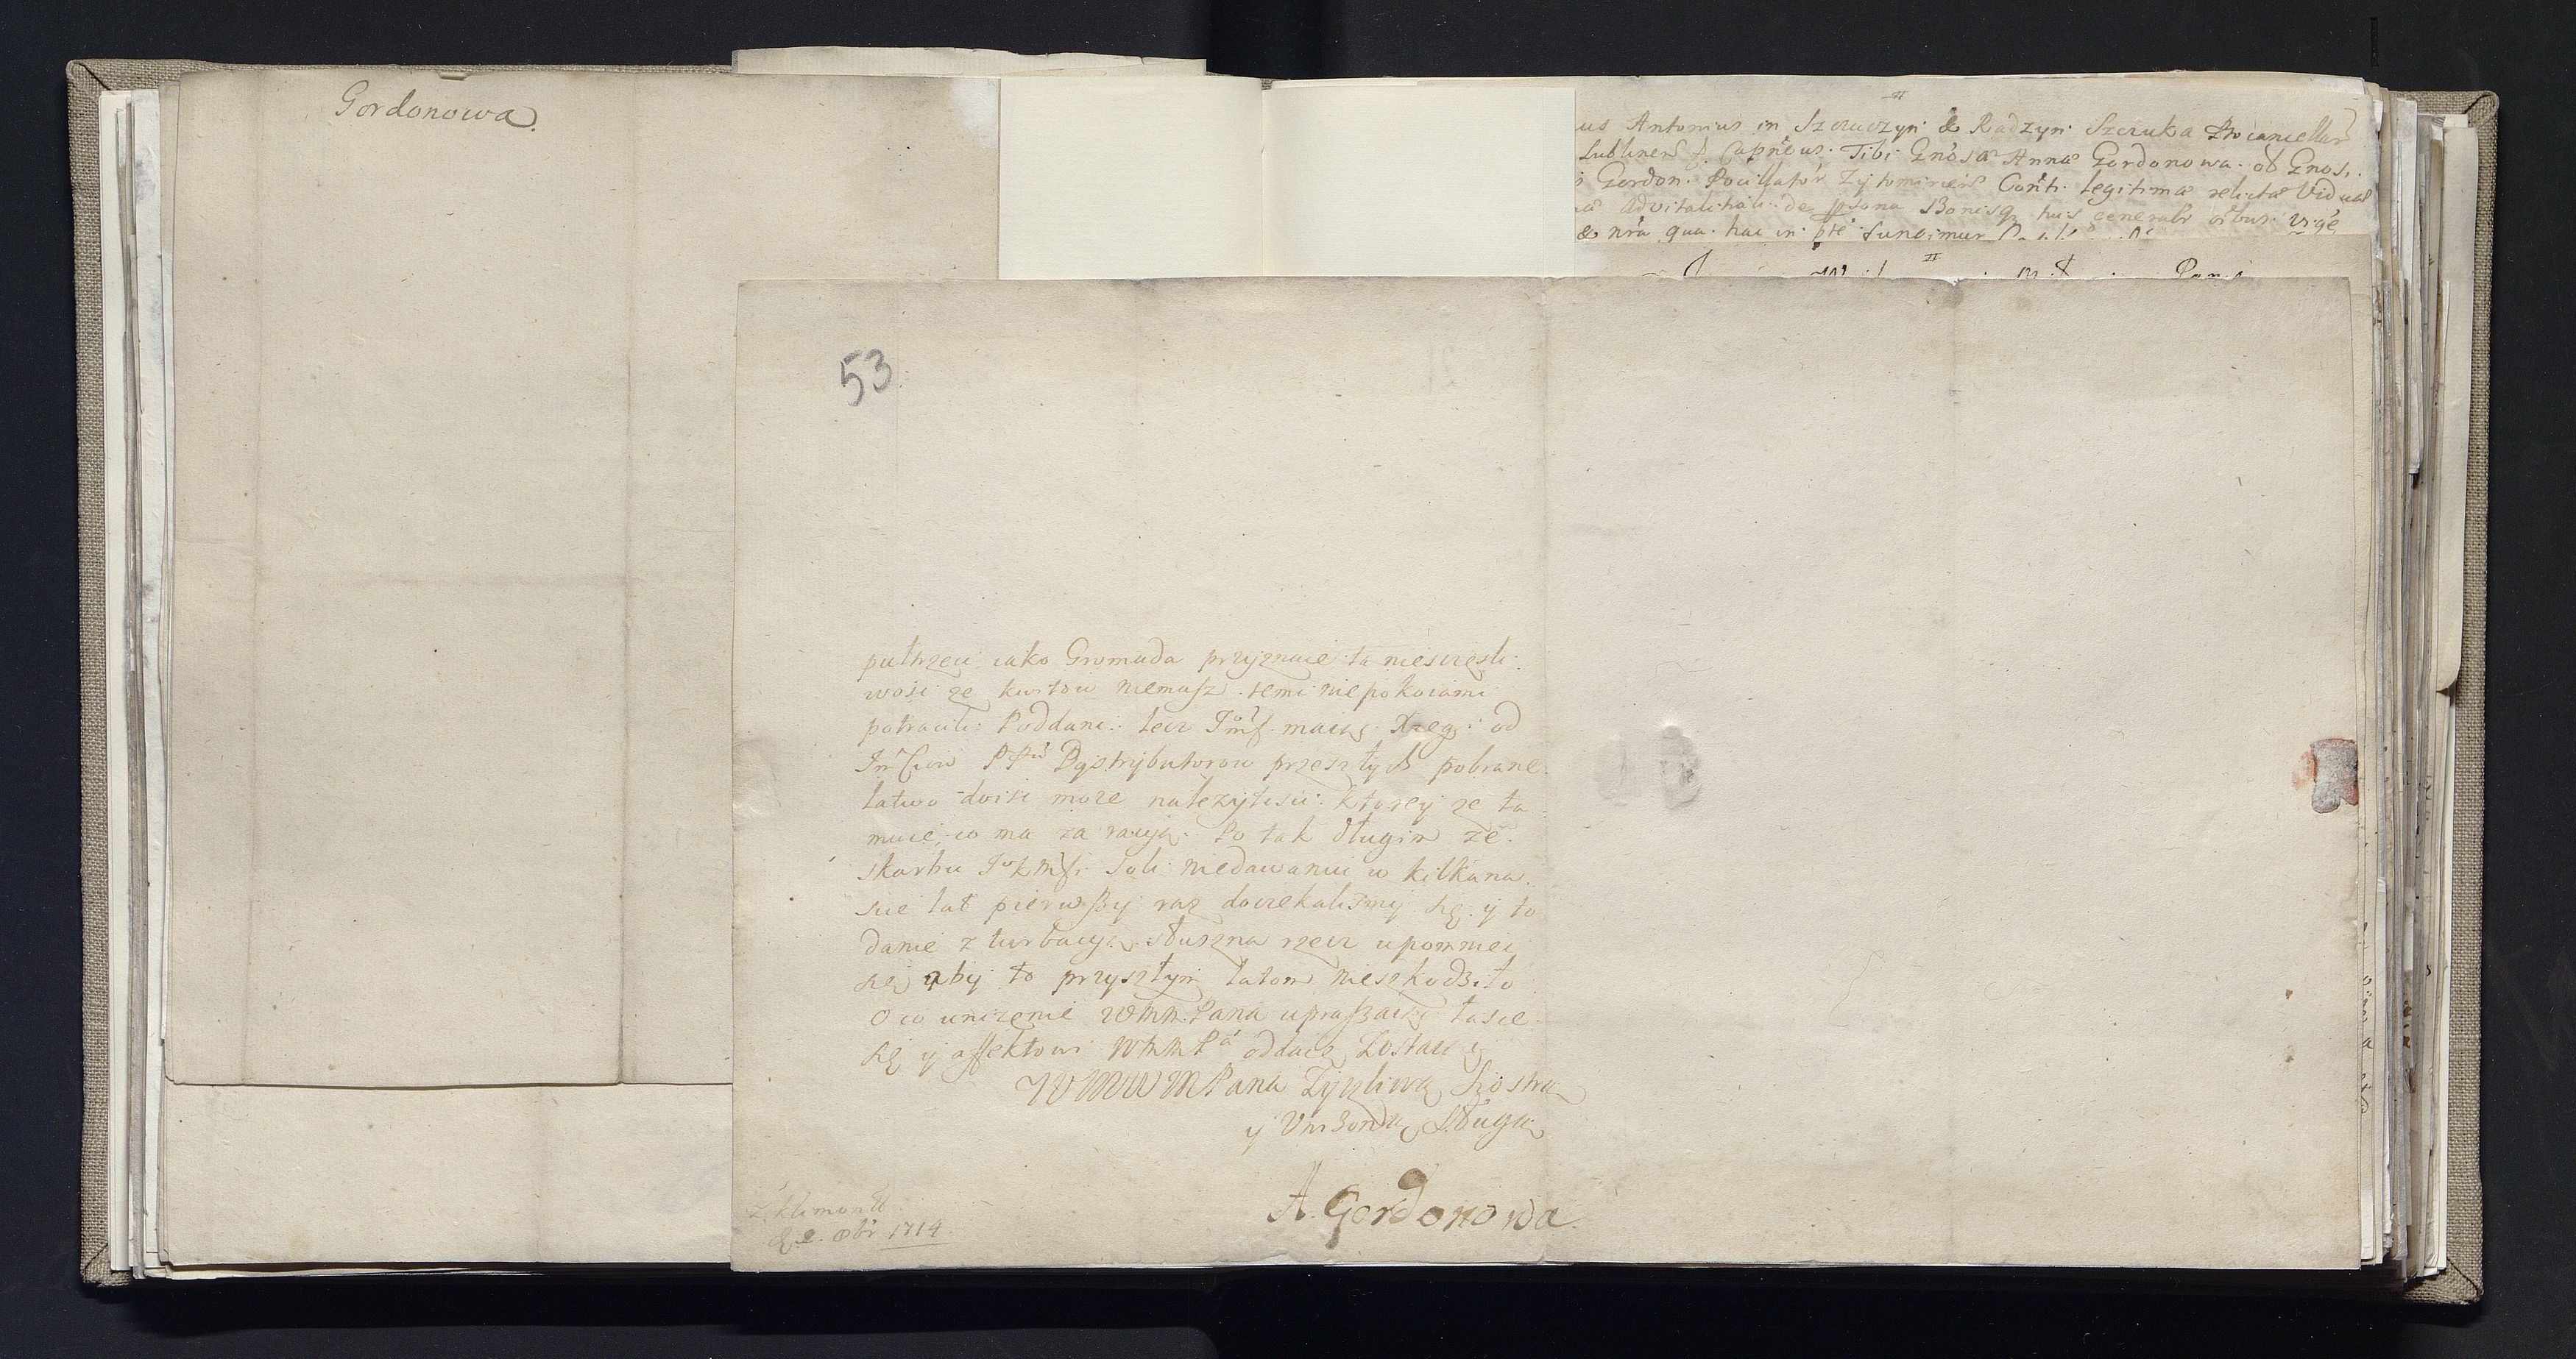 Gordonowa.
us Antonius in Szczuczyn & Radzyn Szczuka Procancellar
Lublinen Capneus. Tibi Gnosa Anna Gordonowa. ol Gnosi.
Gordon. Pocillator Zytomirien Conti. legitima relicta Vidua
advitalitali de psona Bonisq tuis generalr oibus
& nra qua. hac in pte fungimur
53
patrzeii iako Gromada przyznaie ta niesczęsli.
wosi ze kwitow niemasz. temi niepokoiami
potracili Poddani. lecz Jmſ. maiąc Xięgi od
PPw Dystrybutorow przeszłych pobrane.
łatwo doisi moze nalezytosii. ktorey ze ta
muie, co ma za racyą. Po tak długim ze.
skarbu Soli niedawaniu w kilkana.
scie lat pierwszy raz doczekalismy się. y to
danie z turbacyą. słuszna rzecz upomniei
się, aby to przyszłym latom nieszkodziło
O co unizenie WMM. Pana upraszaiąc łasce
się y affektowi WMMPa oddaię Zostaię
WMWMPana Zyczliwą Siostrą
y Unizoną Sługą
A. Gordonowa.
Z Klimontt.
d. 2. obr 1714